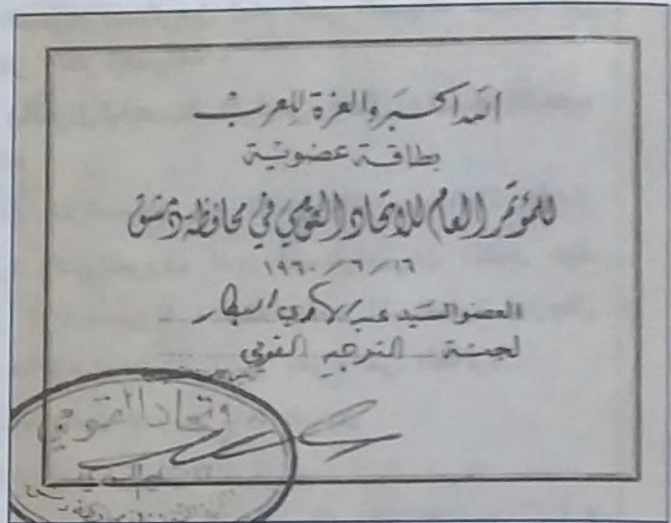 الله اكبر والعزة للعرب
بطاقة عضوية
للمؤتمر العام للاتحاد القومي في محافظة دمشق
١٩٦٠/٦/١٦
العضو السيد عبد الهادي البكار
لجنة التوجيه القومي
الاتحاد القومي